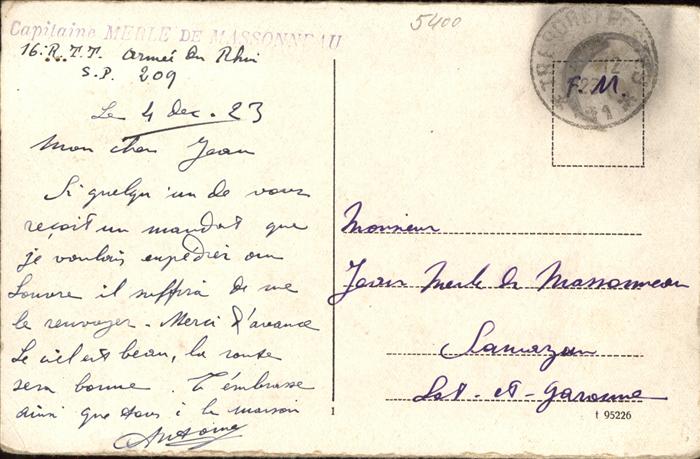 5400
Capitaine MERLE DE MASSONNEAU
16. R.T.T. Armée du Rhin
S.P. 209
Le 4 dec. 23
Mon cher Jean
Si quelqu'un de vous
reçoit un mandat que
je voulais expédier au
Louvre il suffira de me
le renvoyer. Merci d'avance
Le ciel est beau, la route
sera bonne. Je t'embrasse
ainsi que tous à la maison
Antoine
TRESOR ET POSTES
F.M.
Monsieur
Jean Merle de Massonneau
Samazan
Lot-et-Garonne
1
t 95226